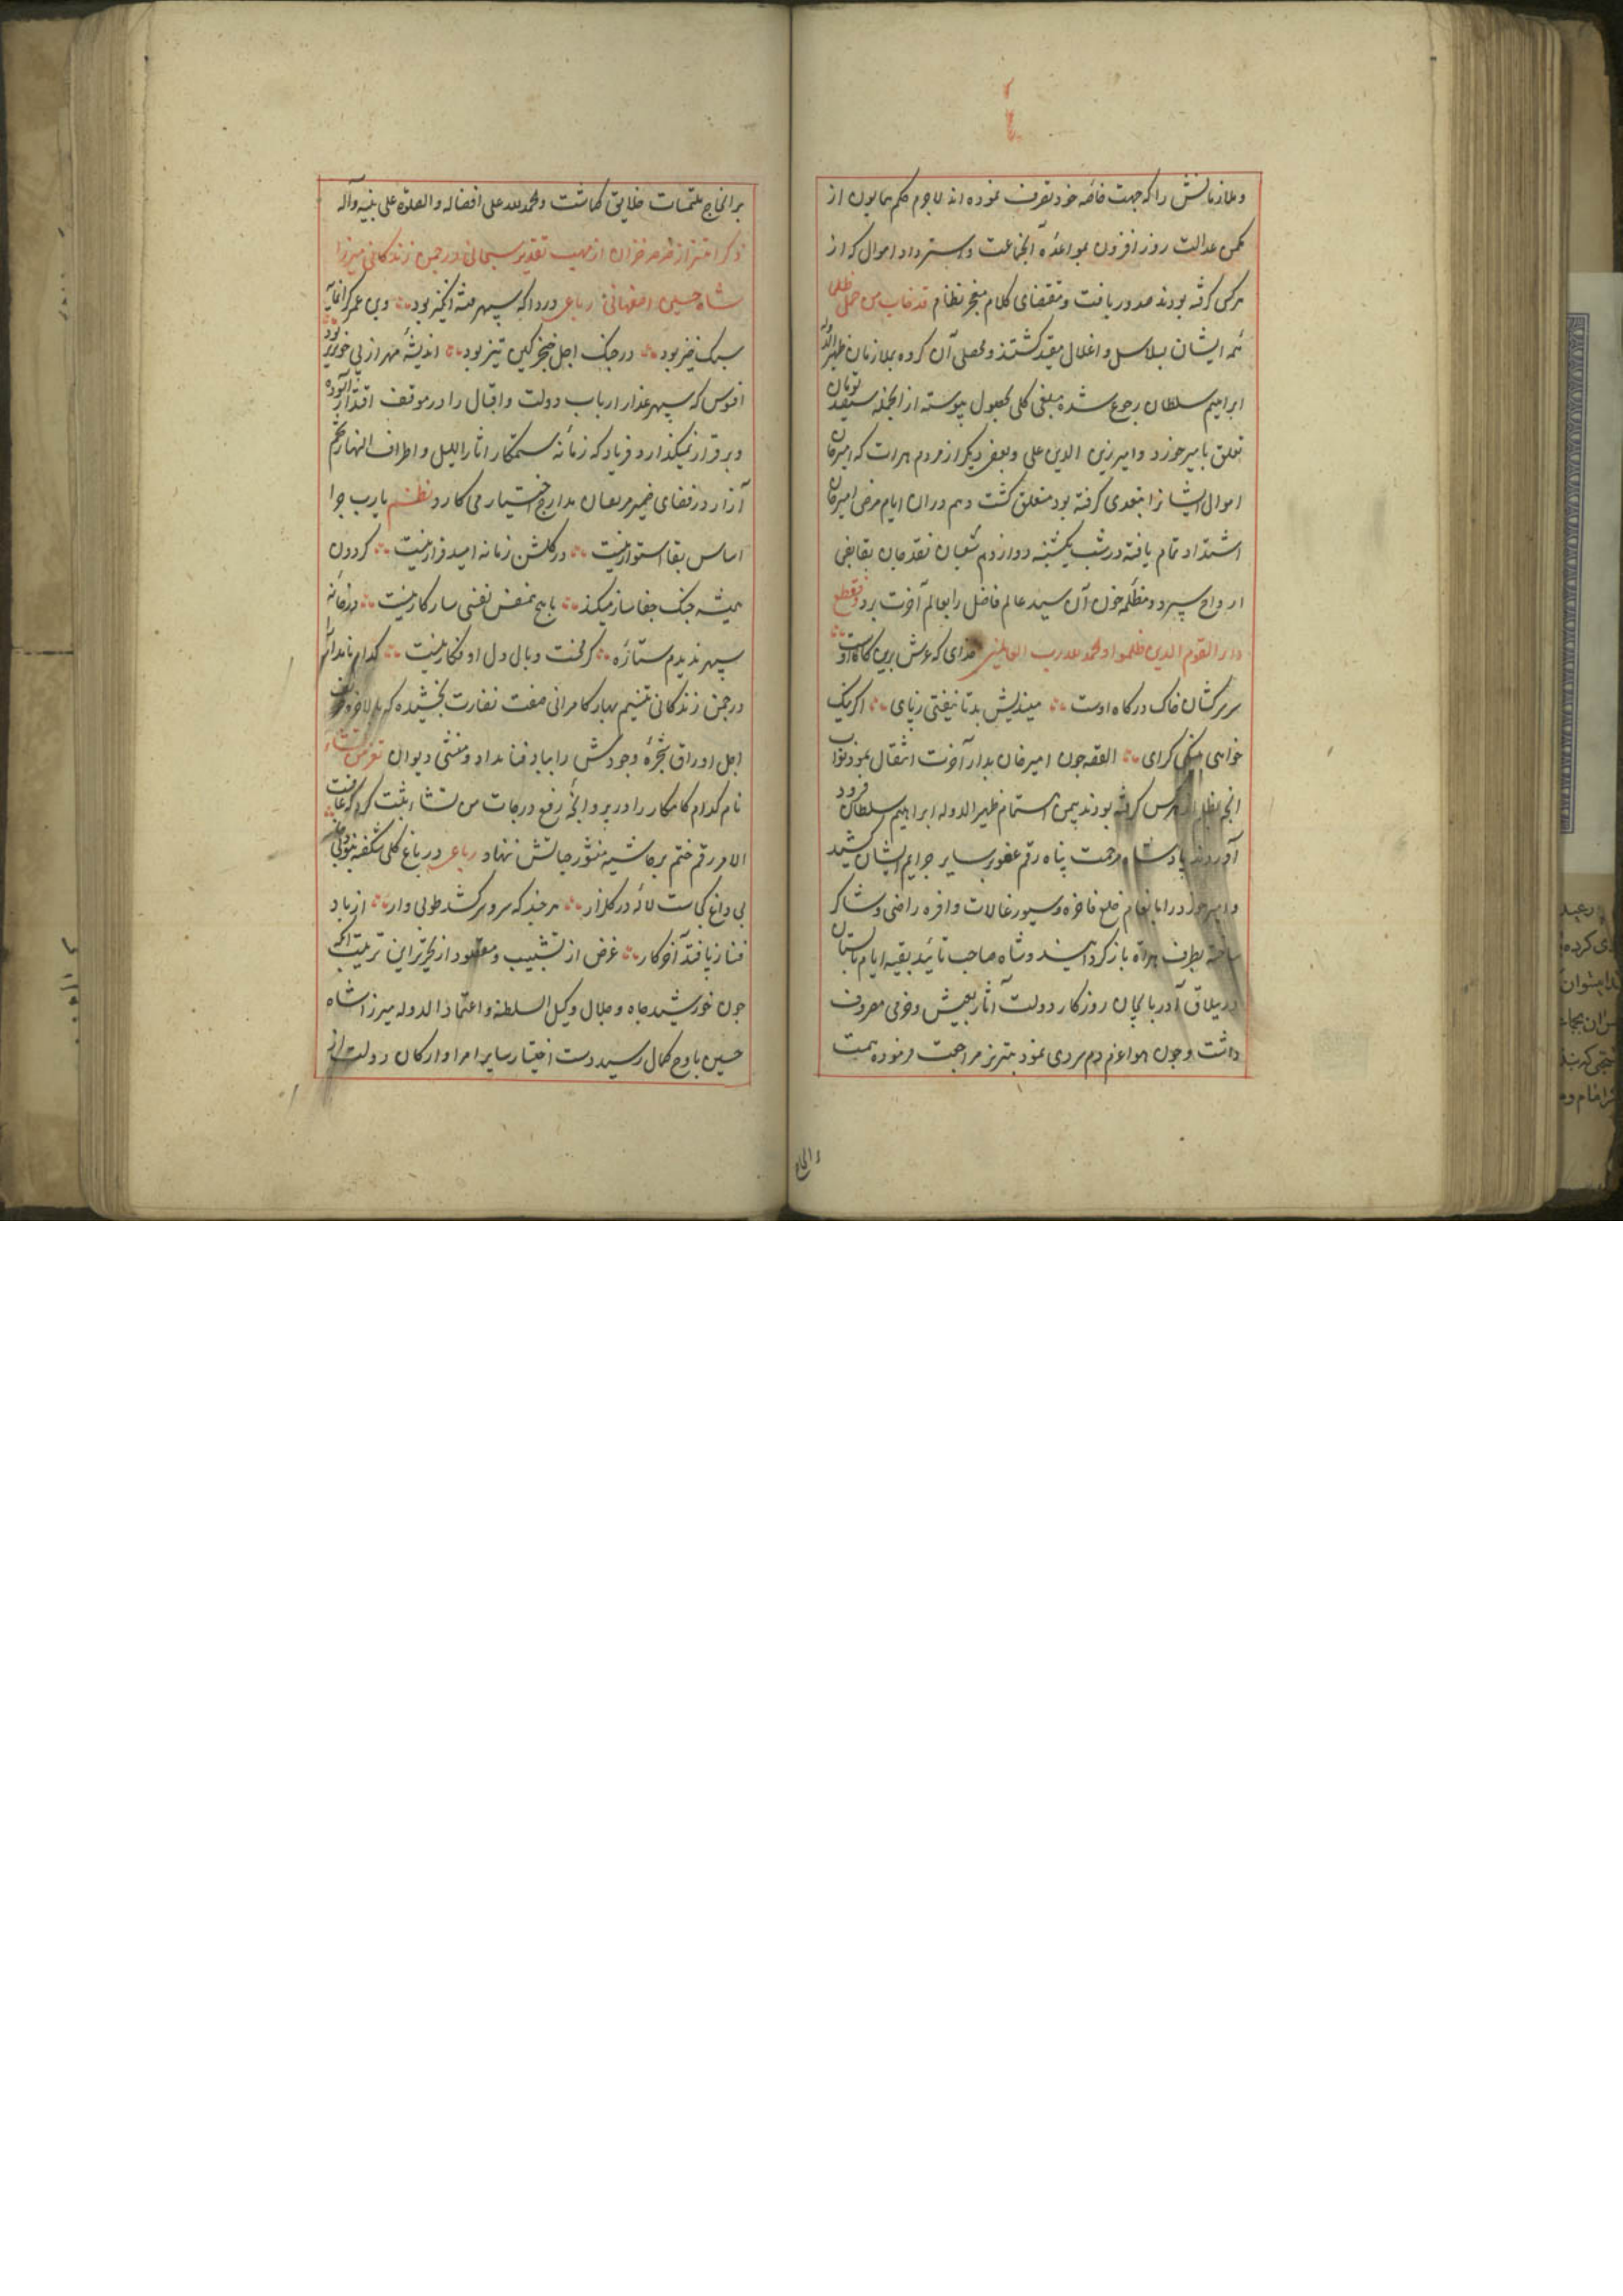 وملازمانش را که جهت خاصه خود تصرف نموده اند لاجرم حکم همایون از
مکمن عدالت روز افزون بمواخذه آنجماعت و استرداد اموال که از
هرکس گرفته بودند صدور یافت و بمقتضای کلام معجز نظام قد خاب من حمل ظلما
همه ایشان بسلاسل و اغلال مقید کشتند و محصلی آن کروه بملازمان ظهیر الدوله
ابراهیم سلطان رجوع شده مبلغی کلی بحصول پیوسته از انجمله سیصد تومان
تعلق بامیر خورد و امیر زین الدین علی و بعضی دیکر از مردم هرات که امیرخان
اموال ایشانرا بتعدی کرفته بود متعلق کشت و هم در ان ایام مرض امیرخان
اشتداد تمام یافته در شب یکشنبه دوازدهم شعبان نقد جان بقابض
ارواح سپرد و مظلمه خون آن سید عالم فاضل را بعالم آخرت برد فقطع
دابر القوم الذین ظلموا والحمد لله رب العالمین خدای که عرش برین کاه اوست
سر سرکشان خاک درکاه اوست میندیش بد تا نیفتی زپای اکر نیک
خواهی بنیکی کرای القصه چون امیرخان بدار آخرت انتقال نمود نواب
انجم نظام از هرس گرفته بودند بیمن اهتمام ظهیر الدوله ابراهیم سلطان فرود
آوردند پادشاه مرحمت پناه رقم عفو بر سایر جرایم ایشان کشید
و امیر خورد را بانعام خلع فاخره و سیورغالات وافره راضی و شاکر
ساخته بطرف هراة باز کردانیدند و شاه صاحب تائید بقیه ایام تابستان
در ییلاق آذربایجان روزکار دولت آثار بعیش و خرمی مصروف
داشت و چون هوا عزم دم سردی نمود بتبریز مراجعت فرموده همت
بر انجاح ملتمسات خلایق کماشت والحمد لله علی افضاله والصلوة علی نبیه وآله
ذکر اهتزاز صرصر خزان از مهب تقدیر سبحانی در چمن زندکانی میرزا
شاه حسین اصفهانی رباعی دردا که سپهر فتنه انکیز بود وین عمر کرانمایه
سبک خیز بود در جنک اجل خنجر کین تیز بود اندیشه مهر از پی خونریز بود
افسوس که سپهر غدار ارباب دولت و اقبال را در موقف اقتدار آسوده
و برقرار نمیکذارد و فریاد که زمانه ستمکار اناء اللیل و اطراف النهار تخم
آزار در فضای ضمیر مربعان مدارج اختیار می کارد نظم یارب چرا
اساس بقا استوار نیست در کلشن زمانه امید قرار نیست کردون
همیشه چنک جفا ساز میکند با هیچ نفسی سازکار نیست
سپهر ندیدم ستاره کز نحت وبال دل او فکار نیست کدام نامدار
در چمن زندکانی بنسیم بهار کامرانی صفت نضارت بخشیده که بالاخر
اجل اوراق شجره وجودش را بباد فنا نداد و منشی دیوان تعز من تشاء
نام کدام کامکار را در پروانجه رفع درجات من نشاء ثبت کرد که عاقبت
الامر رقم ختم بر حاشیه منشور حیاتش ننهاد رباعی در باغ کلی شکفته نبود بی خار
بی داغ کجاست لاله در کلزار هر چند که سرو سر کشد طوبی وار از باد
فنا ز پا فتد آخر کار غرض از تشبیب و مقصود از تحریر این ترتیب آنکه
چون خورشید جاه و جلال وکیل السلطنه و اعتماد الدوله میرزا شاه
حسین باوج کمال رسید دست اختیار سایر امرا و ارکان دولت از
و انجاح